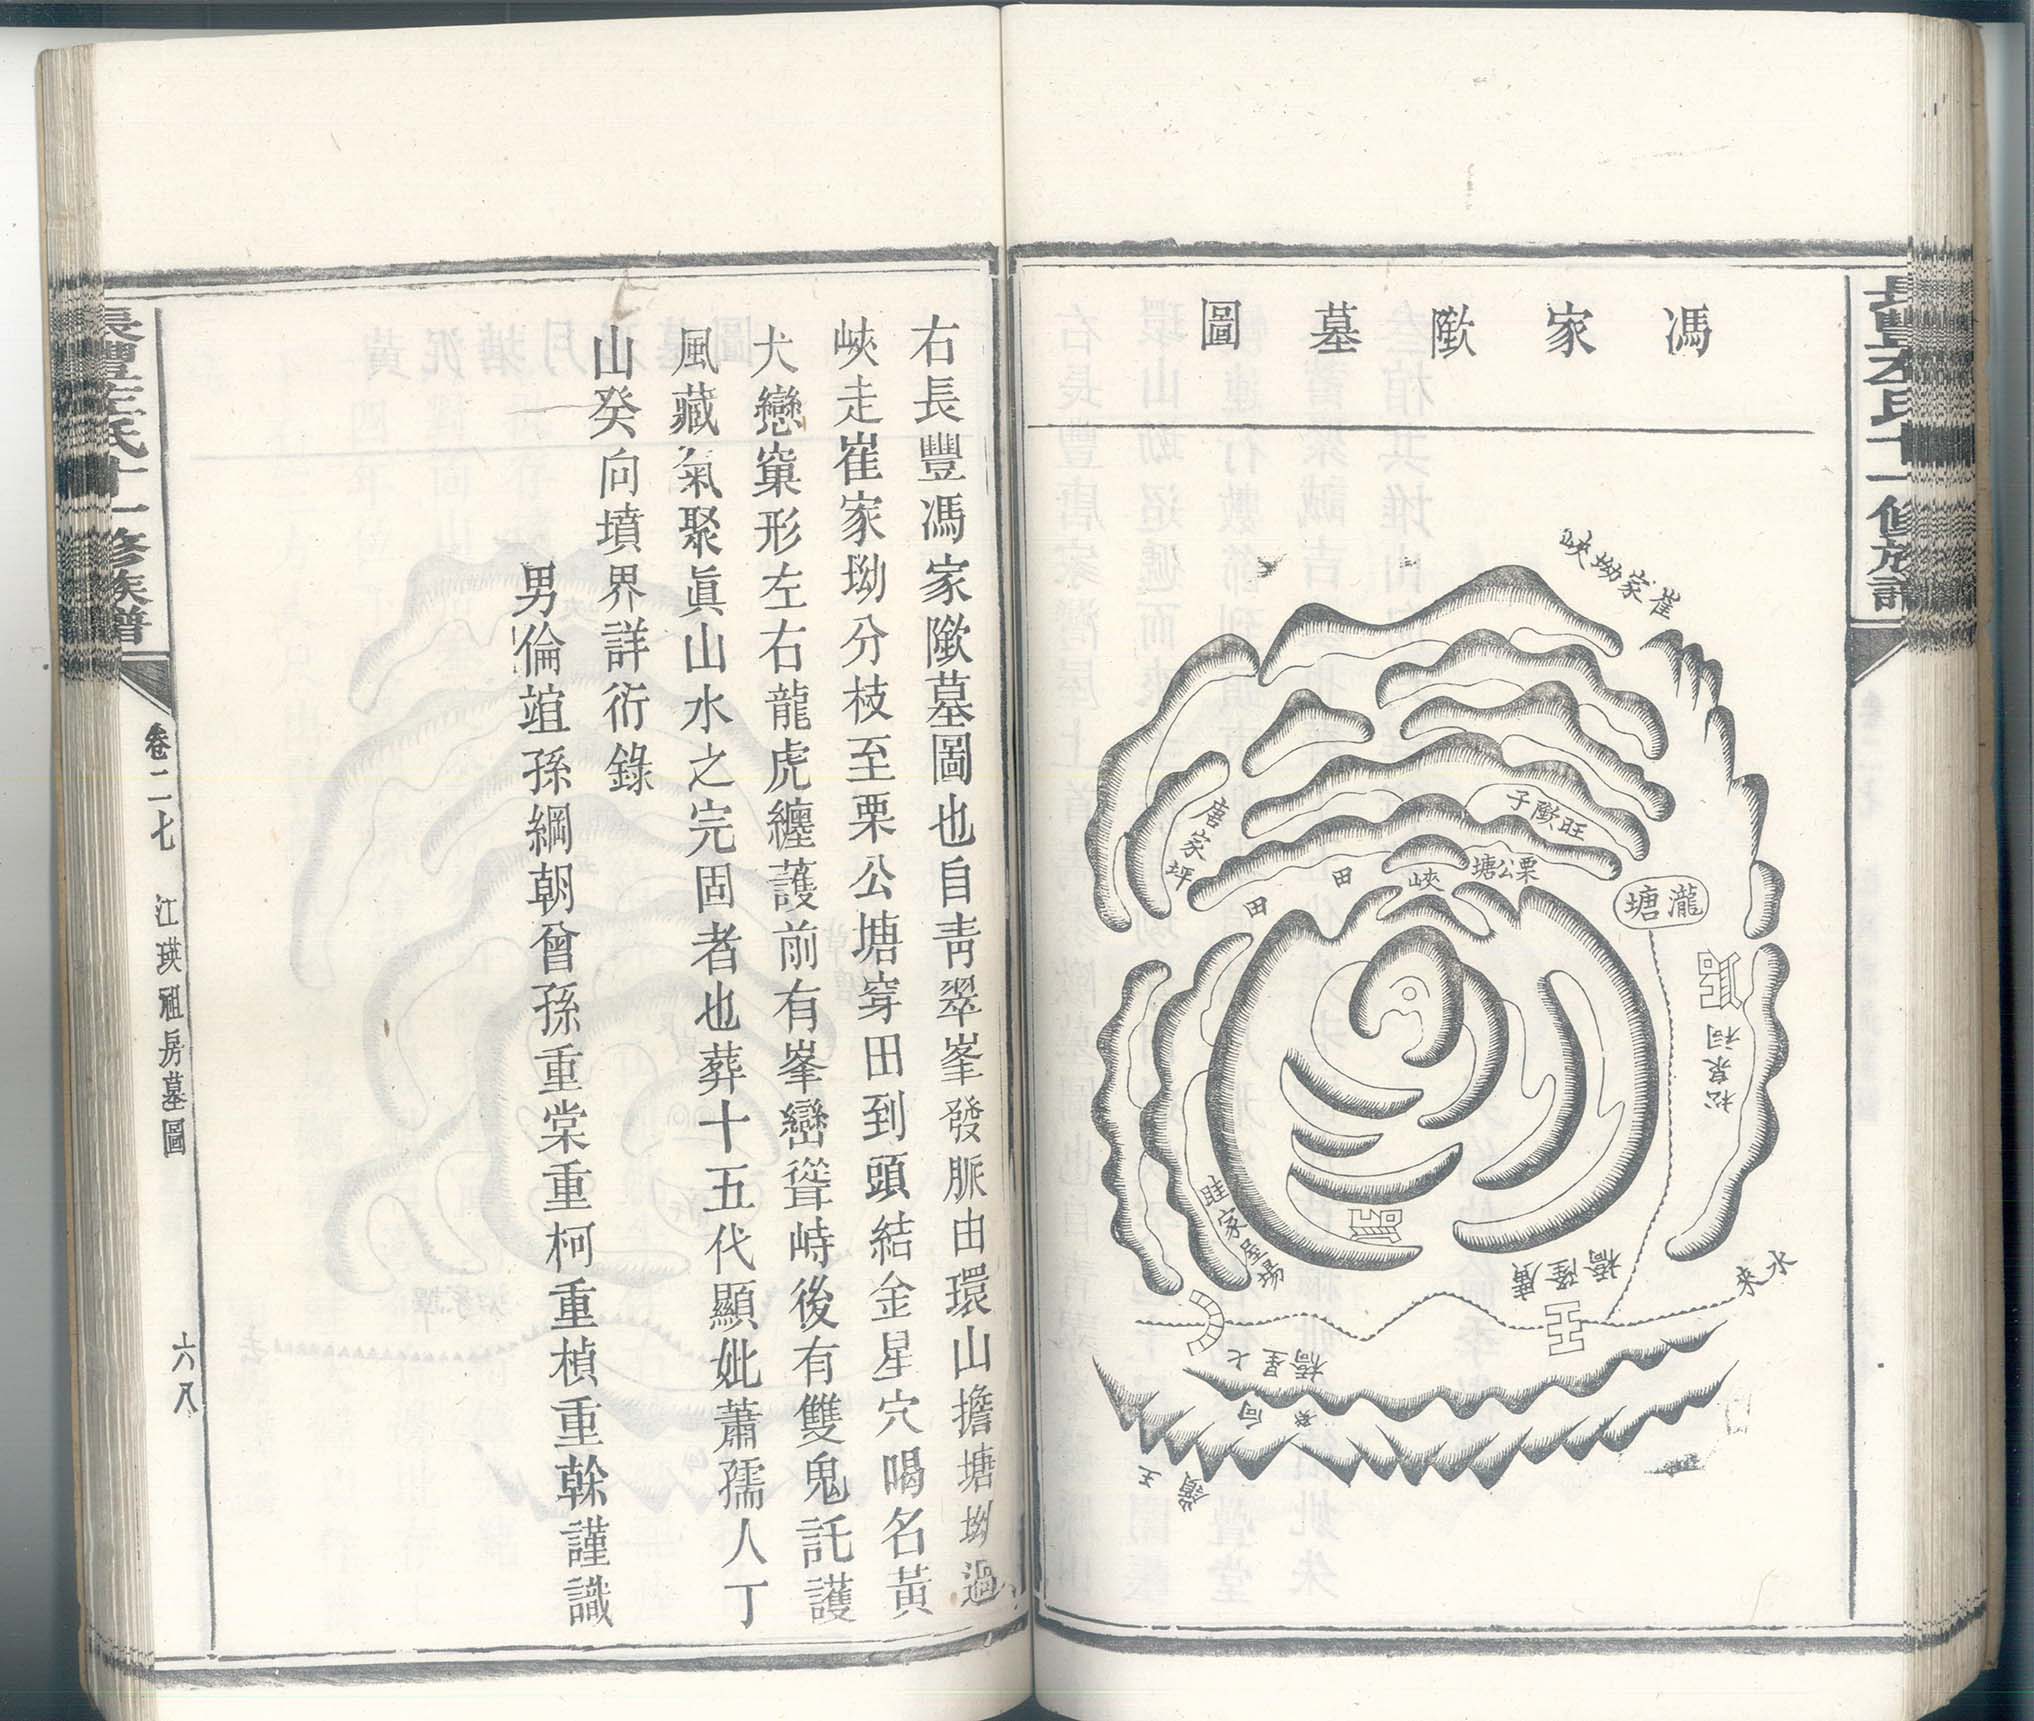 馮家歞墓圖
崔家坳峽
唐家坪
旺歞子
栗公塘
峽
田
田
瀧塘
松泉祠
旺家屋場
廣隆橋
水來
七星橋
癸向
王
嶺
右長豐馮家歞墓圖也自青翠峯發脈由環山擔塘坳過
峽走崔家坳分枝至栗公塘穿田到頭結金星穴喝名黃
犬戀窠形左右龍虎纏護前有峯巒聳峙後有雙鬼託護
風藏氣聚眞山水之完固者也葬十五代顯妣蕭孺人丁
山癸向墳界詳衍錄
男倫𧨿孫綱朝曾孫重棠重柯重楨重榦謹識
長豐左氏十一修族譜
卷二七
江瑛祖房墓圖
六八